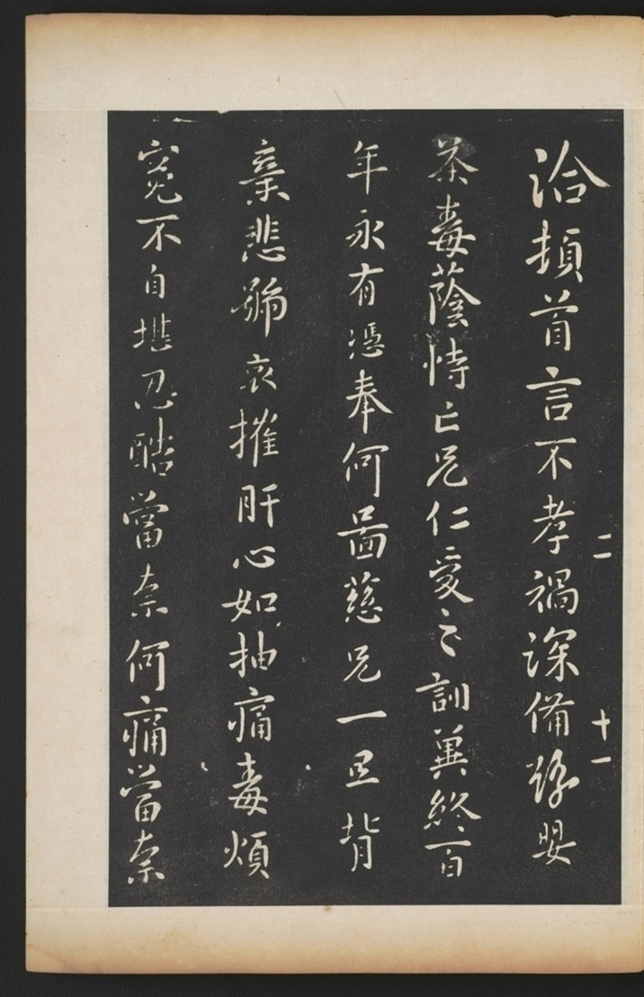 洽頓首言不孝禍深備豫嬰
二
十一
荼毒蔭恃亡兄仁愛之訓兾終百
年永有憑奉何啚慈兄一旦背
棄悲號哀摧肝心如抽痛毒煩
寃不自堪忍酷當柰何痛當柰